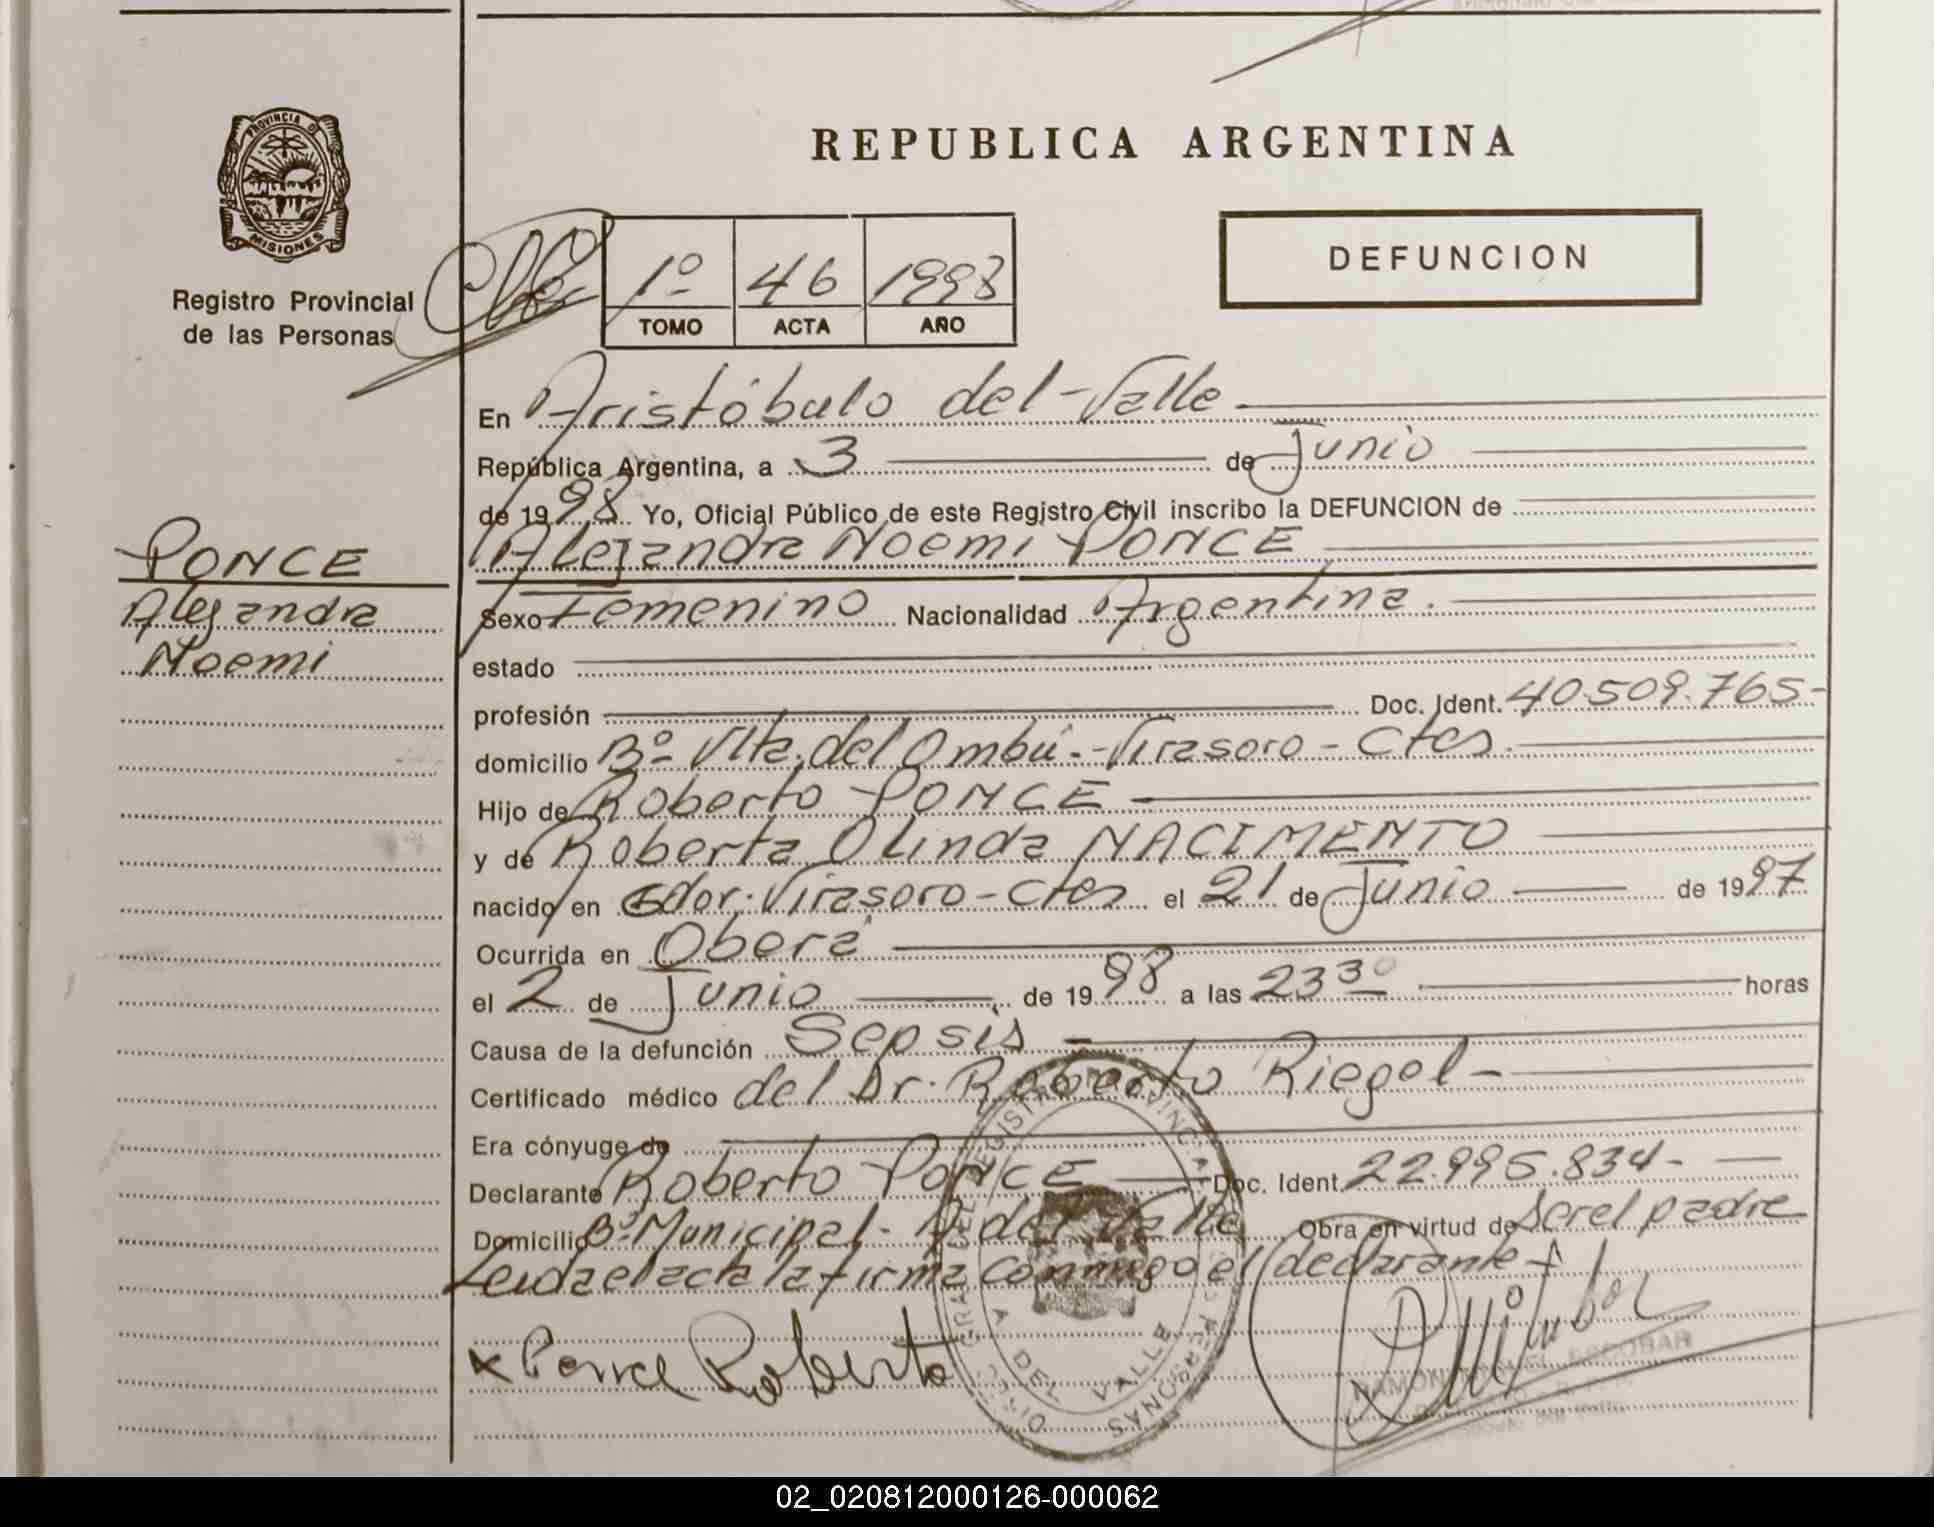 REPUBLICA ARGENTINA
PROVINCIA D
MISIONES
Registro Provincial
de las Personas
1º 46 1998
TOMO ACTA AÑO
DEFUNCION
En Aristóbulo del Valle
República Argentina, a 3 de Junio
de 1998 Yo, Oficial Público de este Registro Civil inscribo la DEFUNCION de
Alejandra Noemi PONCE
PONCE
Alejandra
Noemi
Sexo Femenino Nacionalidad Argentina.
estado
profesión Doc. Ident. 40.509.765-
domicilio Bº Vlta. del Ombú.-Virasoro-Ctes.
Hijo de Roberto PONCE
y de Roberta Olinda NACIMENTO
nacido en Gdor. Virasoro-Ctes el 21 de Junio de 1997
Ocurrida en Oberá
el 2 de Junio de 1998 a las 23 30 horas
Causa de la defunción Sepsis
Certificado médico del Dr. Roberto Riegel-
Era cónyuge de
Declarante Roberto PONCE Doc. Ident. 22.995.834-
Domicilio Bº Municipal- A. del Valle Obra en virtud de ser el padre
Leida el acta la firma conmigo el declarante
x Ponce Roberto
RAMON MIGUEL ESCOBAR
02_020812000126-000062